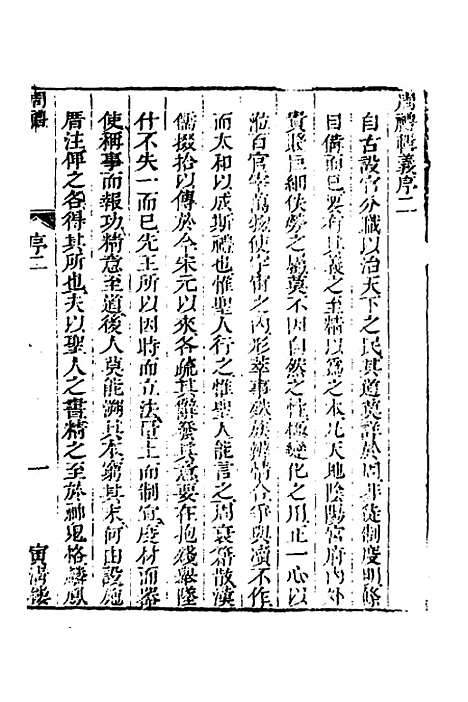 周禮輯義序二
自古設官分職以治天下之民其道莫詳於周非徒制度明條
目備而已要有其義之至精以為之本凡天地陰陽官府內外
貴賤巨細佚勞之屬莫不因自然之性極變化之用正一心以
涖百官學萬物使宇宙之內形萃事鈇族辨情合爭與瀆不作
而太和以成斯禮也惟聖人行之惟聖人能言之周衰籍散漢
儒掇拾以傳於今宋元以來各疏其辭發其意要在抱殘舉墜
什不失一而已先王所以因時而立法冝土而制宜度材而器
使稱事而報功精意至道後人莫能溯其本窮其末何由設施
厝注俾之各得其所也夫以聖人之書精之至於神鬼格鱗鳳
周禮
序二
一
寅清樓